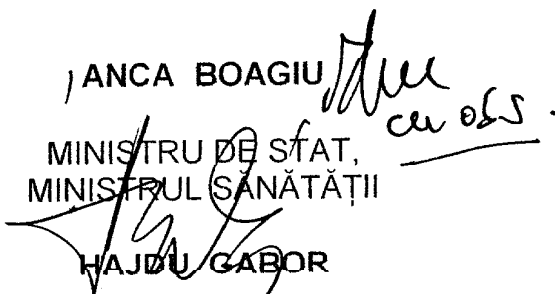 ANCA BOAGIU
cu obs.
MINISTRU DE STAT,
MINISTRUL SĂNĂTĂȚII
HAJDU GABOR